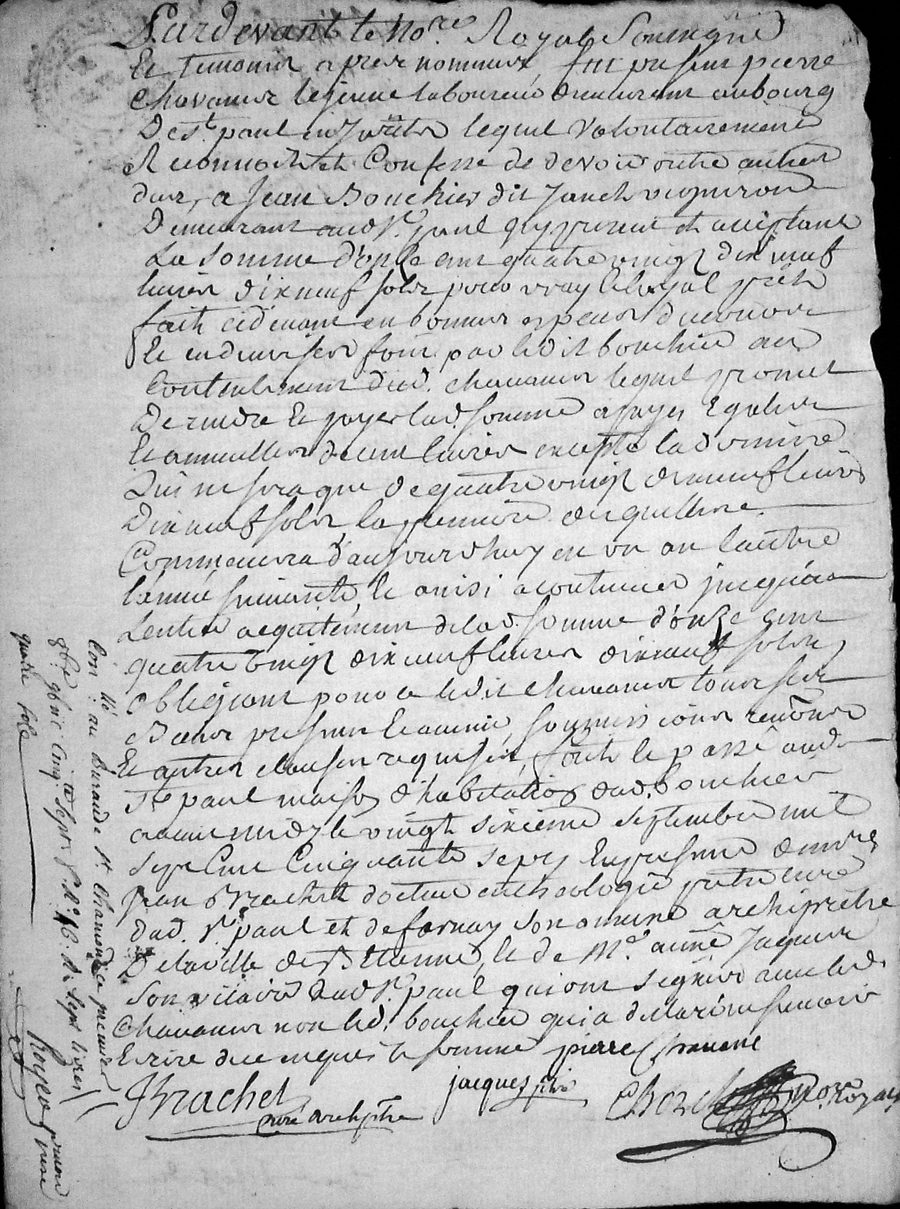 Pardevant le no.re Royal Soussigné
Et temoins apres nommés, fut present pierre
Chavanes lejeune laboureur demeurant au bourg
De st. paul en Jarêts lequel volontairement
Reconnoit et Confesse de devoir outre autres
dus, a Jean Bouchier dit Janet vigneron
Demeurant aud. st. paul cy present et acceptant
La Somme d'onze cent quatre vingt dix neuf
livres dix neuf Sols pour vray et loyal prets
fait cidevant en bonnes especes du cours
Et en diverses fois par ledit bouchier au
Contentement dud. chavanes lequel promet
De rendre Et payer lad. Somme a payes Egales
Et annuelles de cent livres excepté la derniere
Qui ne sera que de quatre vingt dix neuf livres
Dix neuf Sols la premiere desquelles
Commencera d'aujourdhuy en un an l'autre
l'année suivante et ainsi a continuer jusqu'au
L'entier acquitement de lad. Somme d'onze cent
quatre vingt dix neuf livres dix neuf Sols
Obligeant pour ce ledit chavanes tous ses
Biens presens Et avenir, soumis cours renonce
Et autres clauses requises, fait et passé aud.
st. paul maison d'habitation dud. bouchier
avant midy le vingt sixieme septembre mil
sept Cent Cinquante sept En presence de m.re
Jean Brachet docteur en theologie pretre curé
dud. st. paul et de farnay Son annexe archiprêtre
De la ville de St Etienne, et de M.e aimé Jaques
Son vicaire dud. st. paul qui ont signés avec led.
Chavanes non led. bouchier qui a declaré ne savoir
Ecrire de ce enquis et sommé pierre Chavane
JBrachet jacques
curé archiptre no.re Royal
Con.lé au bureau de St chamond ce premier
8bre 1757 cinq.te sept f.o 46. R. sept livres
quatre sols